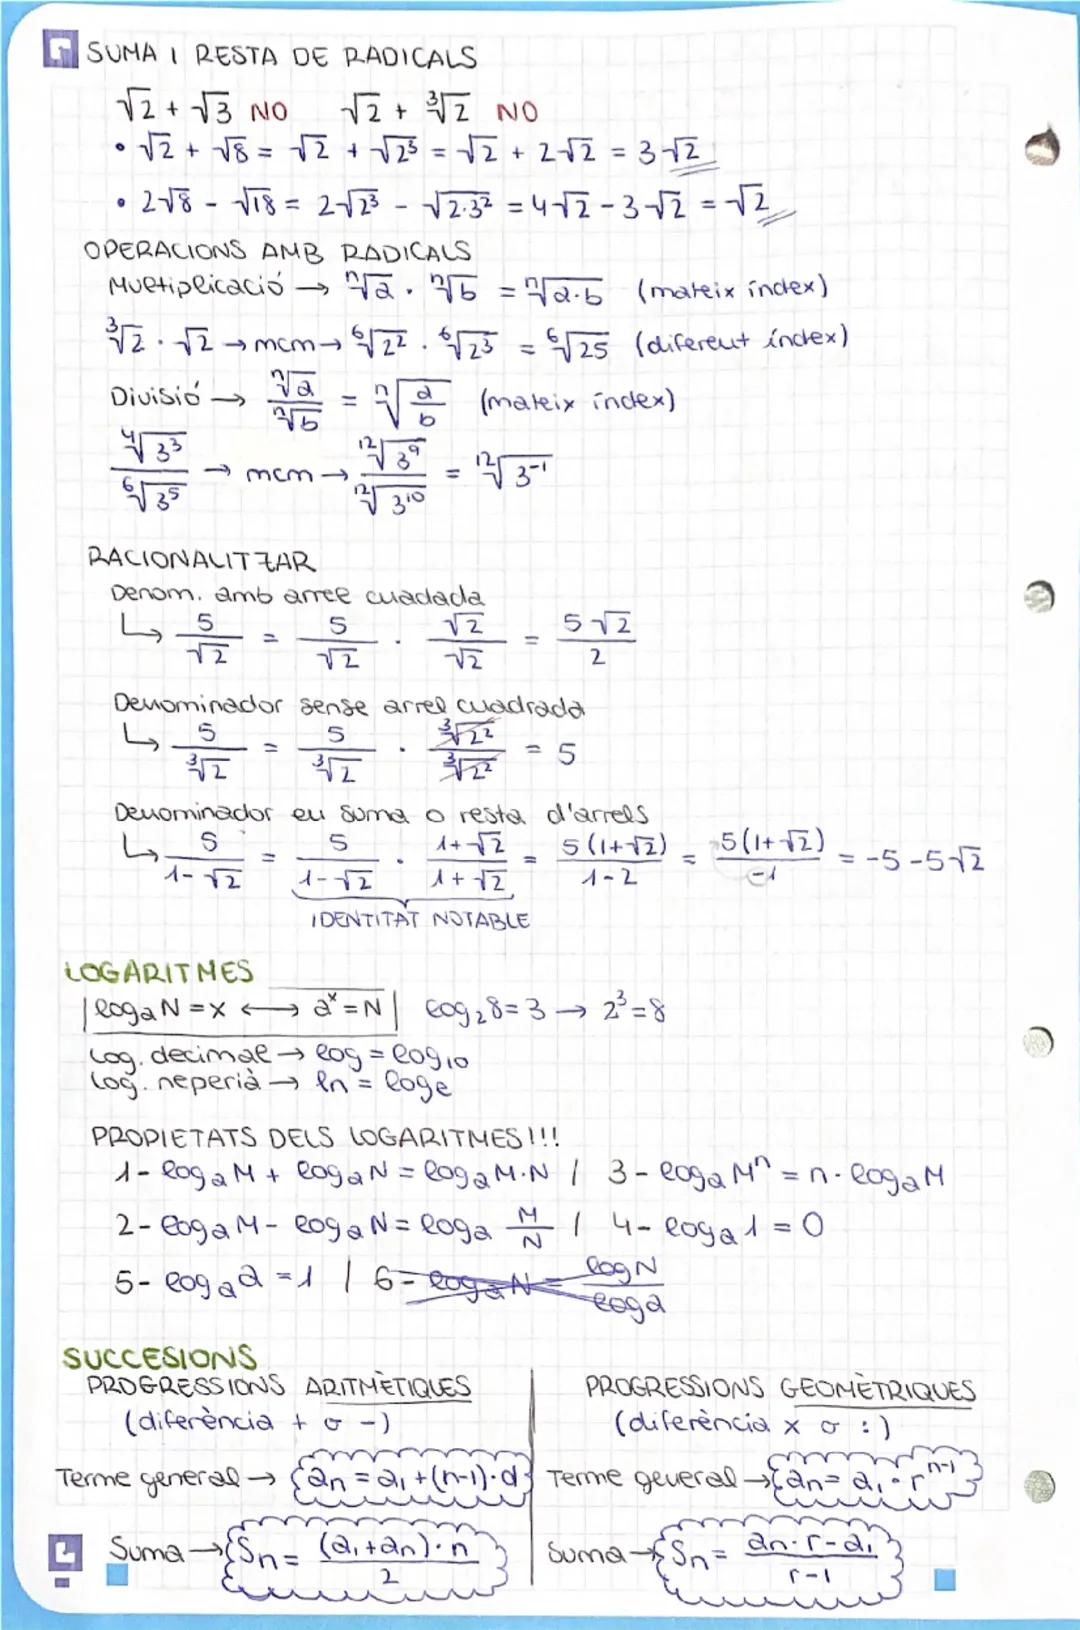 SUMA I RESTA DE RADICALS
√2 + √3 NO √2 + ∛2 NO
• √2 + √8 = √2 + √2³ = √2 + 2√2 = 3√2
• 2√8 - √18 = 2√2³ - √2·3² = 4√2 - 3√2 = √2
OPERACIONS AMB RADICALS
Multiplicació → ⁿ√a · ⁿ√b = ⁿ√a·b (mateix índex)
³√2 · √2 → mcm → ⁶√2² · ⁶√2³ = ⁶√25 (diferent índex)
Divisió → ⁿ√a / ⁿ√b = ⁿ√(a/b) (mateix índex)
⁴√3³ / ⁶√3⁵ → mcm → ¹²√3⁹ / ¹²√3¹⁰ = ¹²√3⁻¹
RACIONALITZAR
Denom. amb arrel cuadada
↳ 5/√2 = 5/√2 · √2/√2 = 5√2/2
Denominador sense arrel cuadrada
↳ 5/³√2 = 5/³√2 · ³√2²/³√2² = 5
Denominador en suma o resta d'arrels
↳ 5/(1-√2) = 5/(1-√2) · (1+√2)/(1+√2) = 5(1+√2)/(1-2) = 5(1+√2)/-1 = -5-5√2
IDENTITAT NOTABLE
LOGARITMES
|logₐN = x ⟷ aˣ = N| log₂8 = 3 → 2³ = 8
Log. decimal → log = log₁₀
Log. neperià → ln = logₑ
PROPIETATS DELS LOGARITMES!!!
1- logₐM + logₐN = logₐM·N / 3- logₐMⁿ = n·logₐM
2- logₐM - logₐN = logₐ M/N / 4- logₐ1 = 0
5- logₐa = 1 / 6- logₐN = logN/loga
SUCCESIONS
PROGRESSIONS ARITMÈTIQUES
(diferència + o -)
Terme general → aₙ = a₁ + (n-1)·d
Suma → Sₙ = (a₁+aₙ)·n / 2
PROGRESSIONS GEOMÈTRIQUES
(diferència x o :)
Terme general → aₙ = a₁·rⁿ⁻¹
Suma → Sₙ = aₙ·r-a₁ / r-1